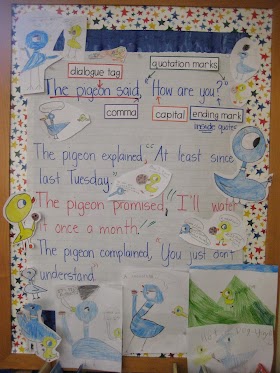 quotation marks
dialogue tag
The pigeon said, "How are you?"
comma
capital
ending mark
inside quotes
The pigeon explained, "At least since
last Tuesday."
The pigeon promised, "I'll water
it once a month."
"The pigeon complained, "You just don't
understand."